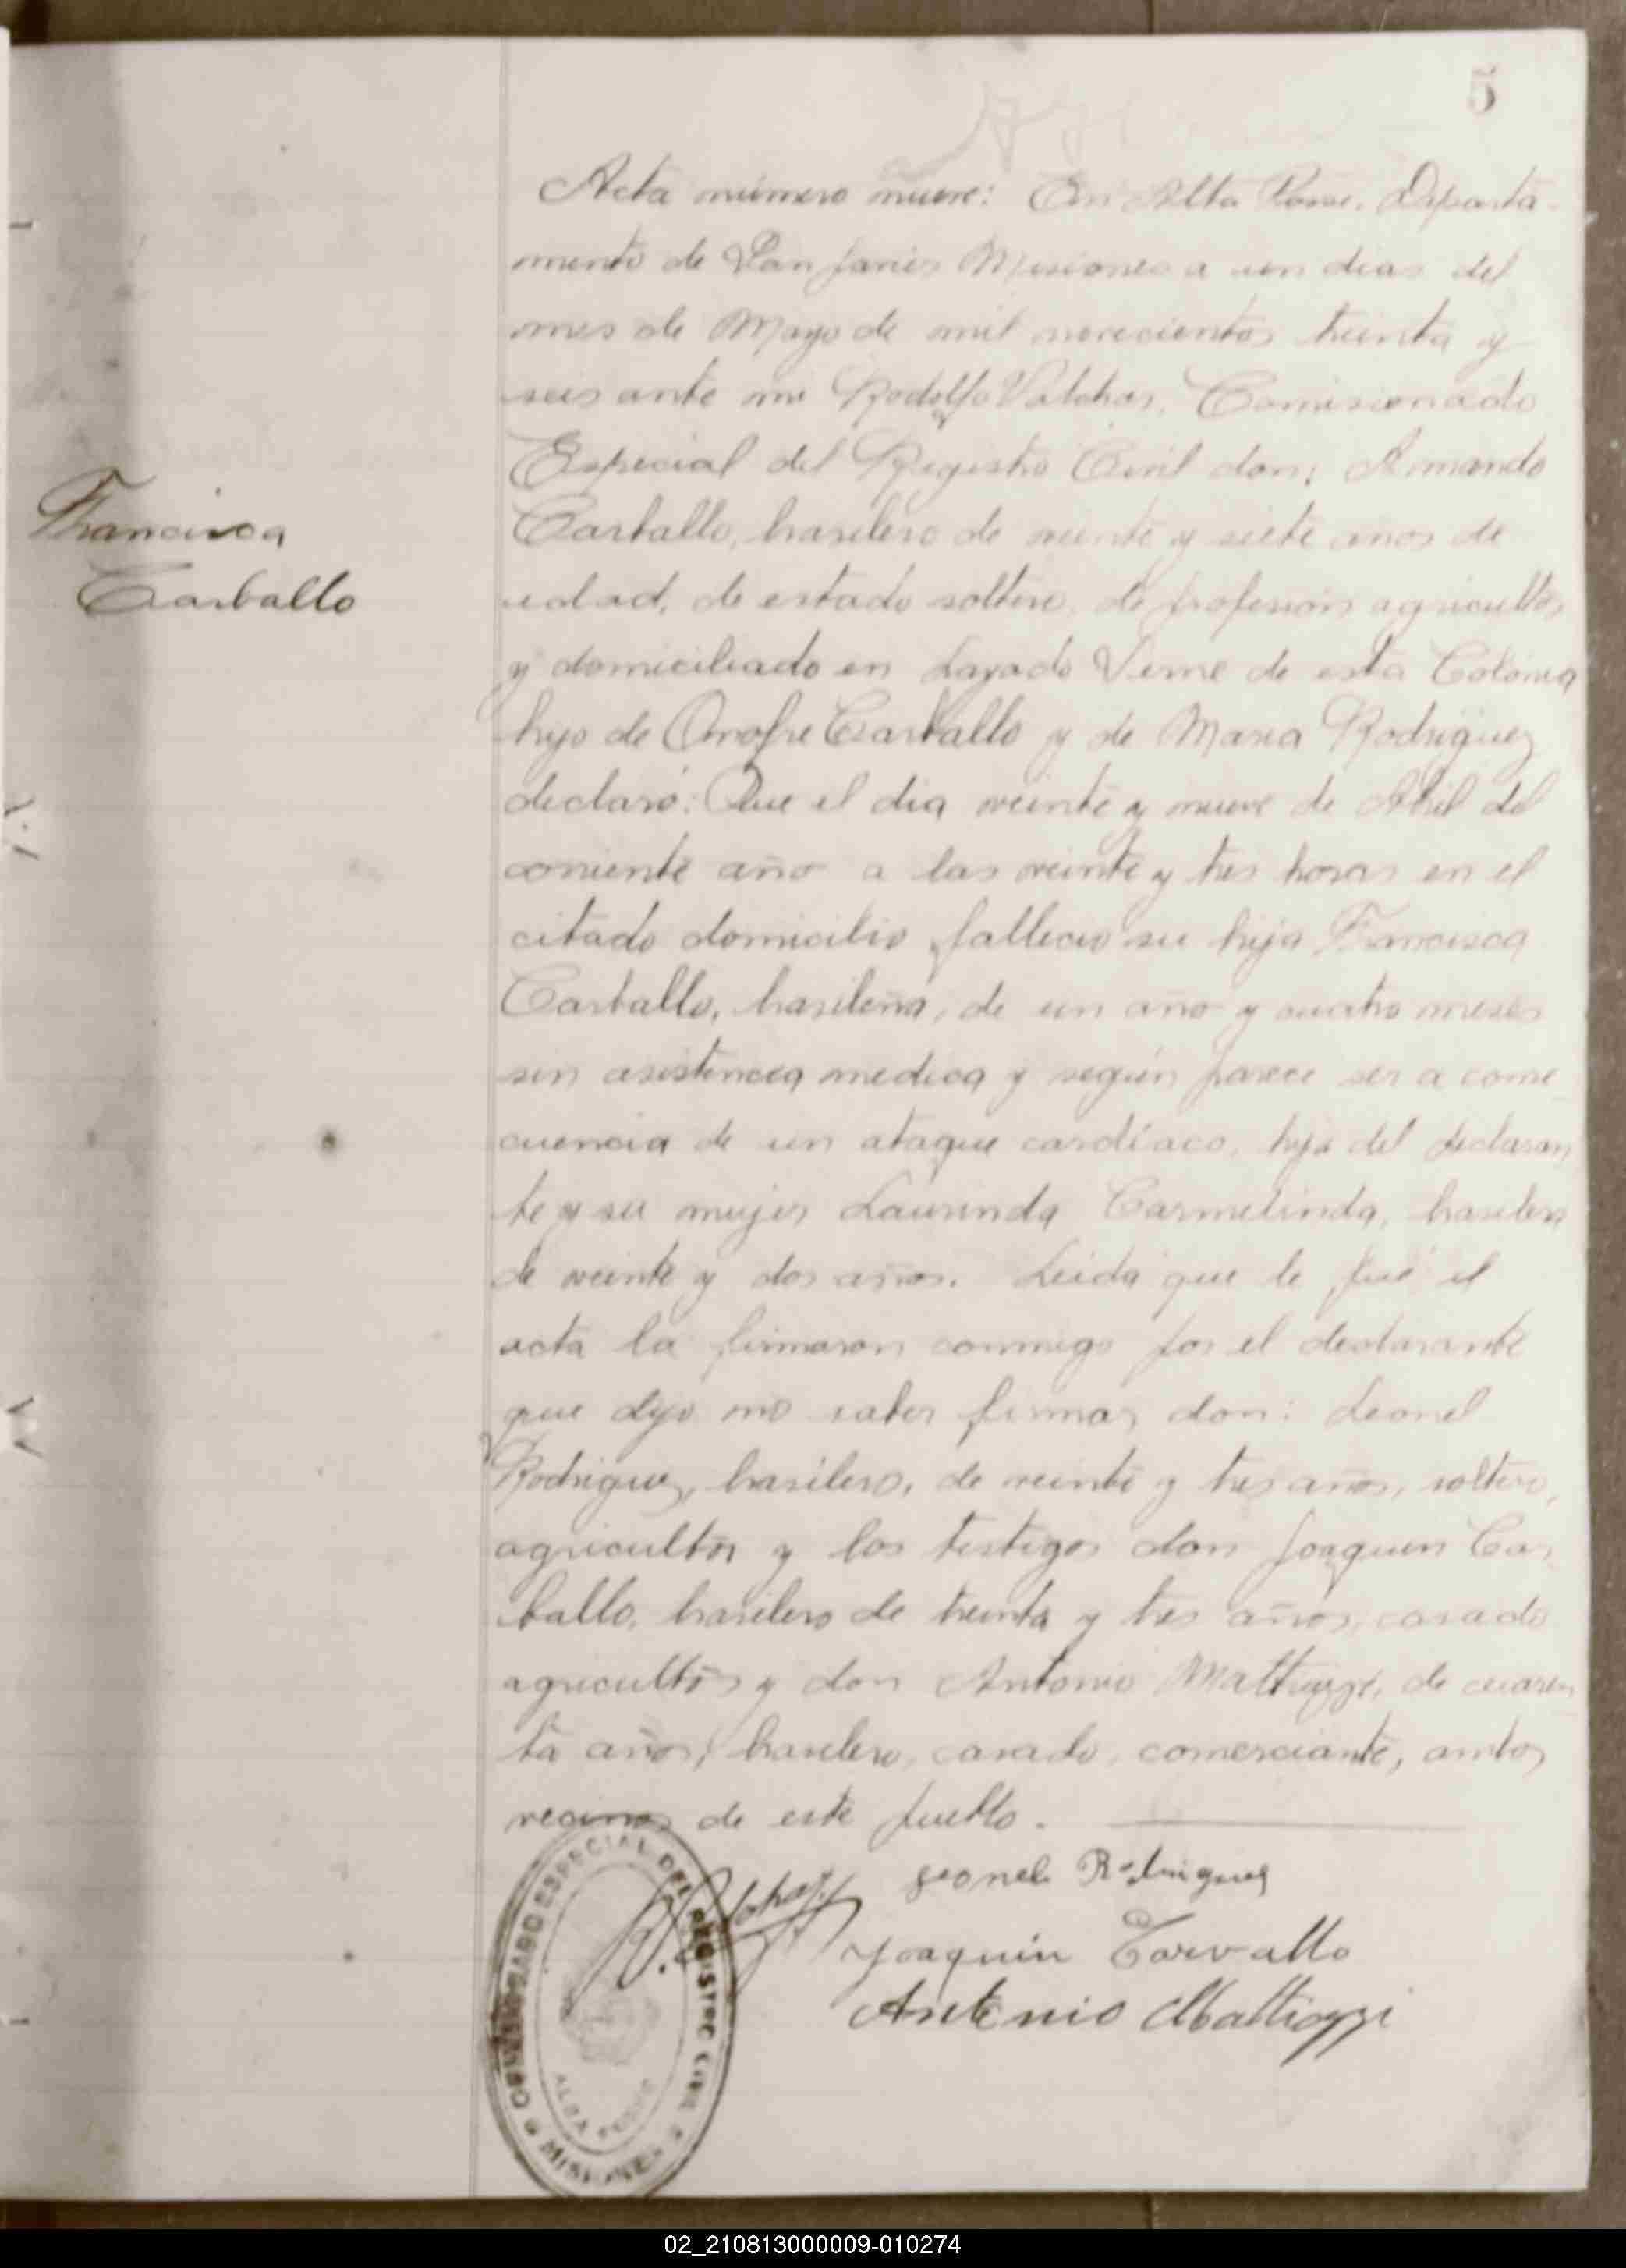 5
Acta número nueve: En Alba Posse, Departa-
mento de San Javier Misiones a un dias del
mes de Mayo de mil novecientos treinta y
seis ante mi Rodolfo Comisionado
Especial del Registro Civil don: Armando
Carballo, brasilero de veinte y siete años de
edad, de estado soltero, de profesión agricultor
y domiciliado en Layado Verne de esta Colonia
hijo de Onofre Carballo y de Maria Rodriguez
declaró: Que el dia veinte y nueve de Abril del
corriente año a las veinte y tres horas en el
citado domicilio falleció su hija Francisca
Carballo, brasileña, de un año y cuatro meses
sin asistencia medica y según parece ser a conse
cuencia de un ataque cardíaco, hija del declaran
te y su mujer Laurinda Carmelinda, brasilera
de veinte y dos años. Leida que le fué el
acta la firmaron conmigo por el declarante
que dijo no saber firmar, don: Leonel
Rodriguez, brasilero, de veinte y tres años, soltero,
agricultor y los testigos don Joaquin Car
ballo, brasilero de treinta y tres años, casado
agricultor y don Antonio Mattiazzi, de cuaren
ta años, brasilero, casado, comerciante, ambos
vecinos de este pueblo.
Francisca
Carballo
Leonel Rodrigues
Joaquin Carvallo
Antonio Mattiazzi
COMISIONADO ESPECIAL DEL REGISTRO CIVIL
ALBA POSSE
MISIONES
02_210813000009-010274